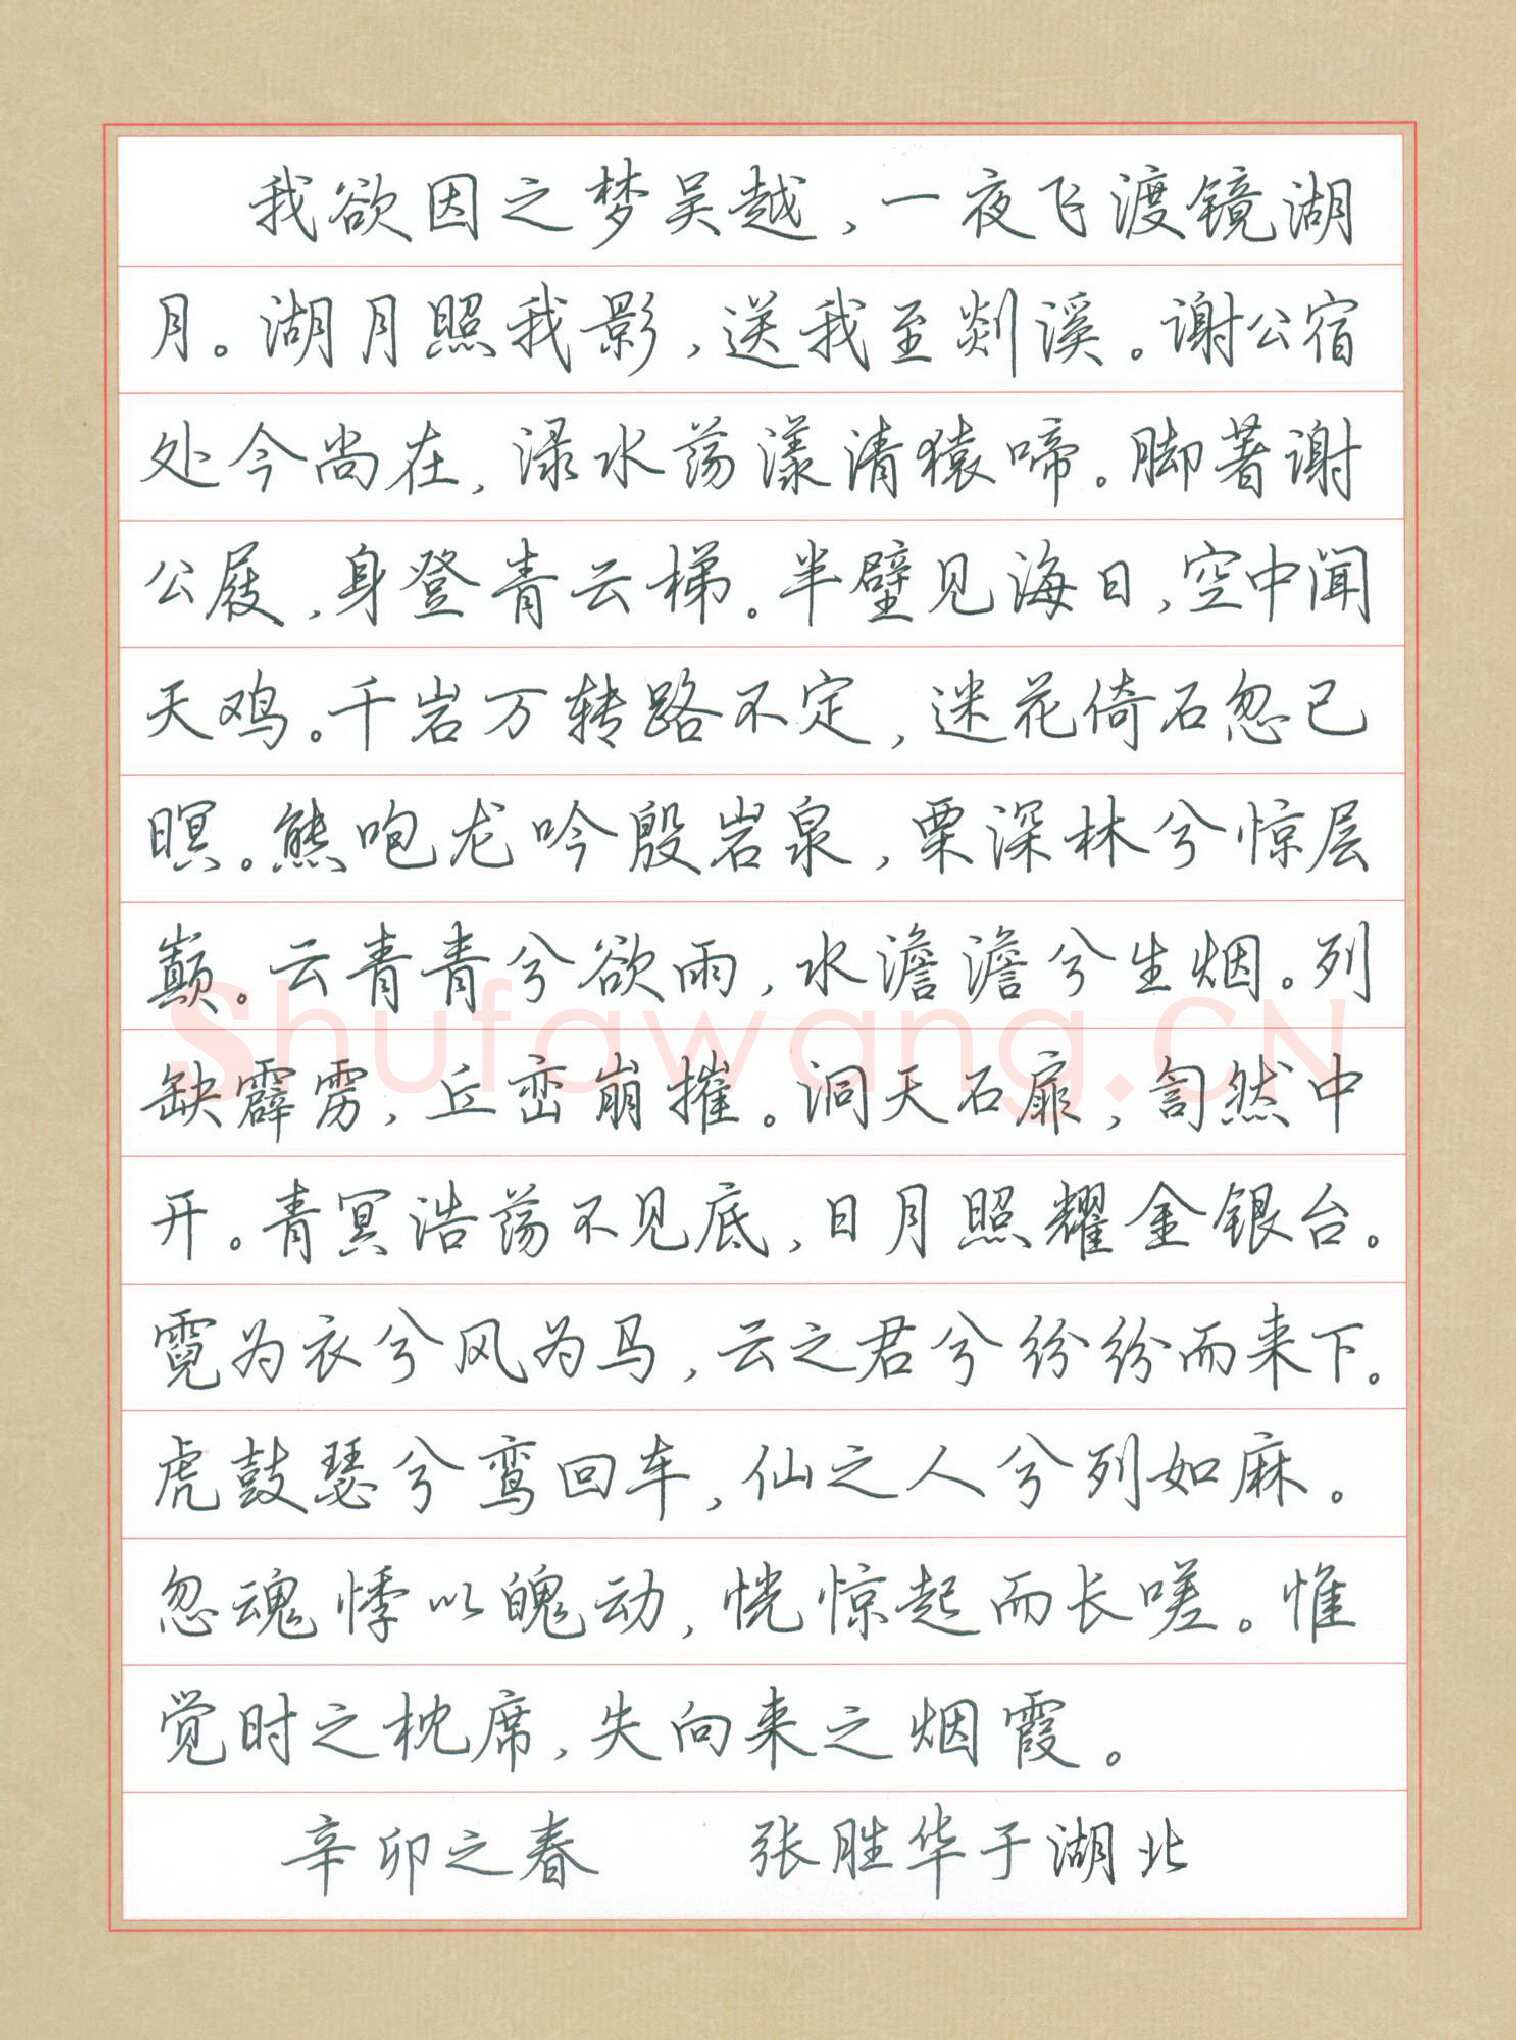 我欲因之梦吴越,一夜飞渡镜湖
月。湖月照我影,送我至剡溪。谢公宿
处今尚在,渌水荡漾清猿啼。脚著谢
公屐,身登青云梯。半壁见海日,空中闻
天鸡。千岩万转路不定,迷花倚石忽已
暝。熊咆龙吟殷岩泉,栗深林兮惊层
巅。云青青兮欲雨,水澹澹兮生烟。列
缺霹雳,丘峦崩摧。洞天石扉,訇然中
开。青冥浩荡不见底,日月照耀金银台。
霓为衣兮风为马,云之君兮纷纷而来下。
虎鼓瑟兮鸾回车,仙之人兮列如麻。
忽魂悸以魄动,恍惊起而长嗟。惟
觉时之枕席,失向来之烟霞。
辛卯之春 张胜华于湖北
Shufawang.CN